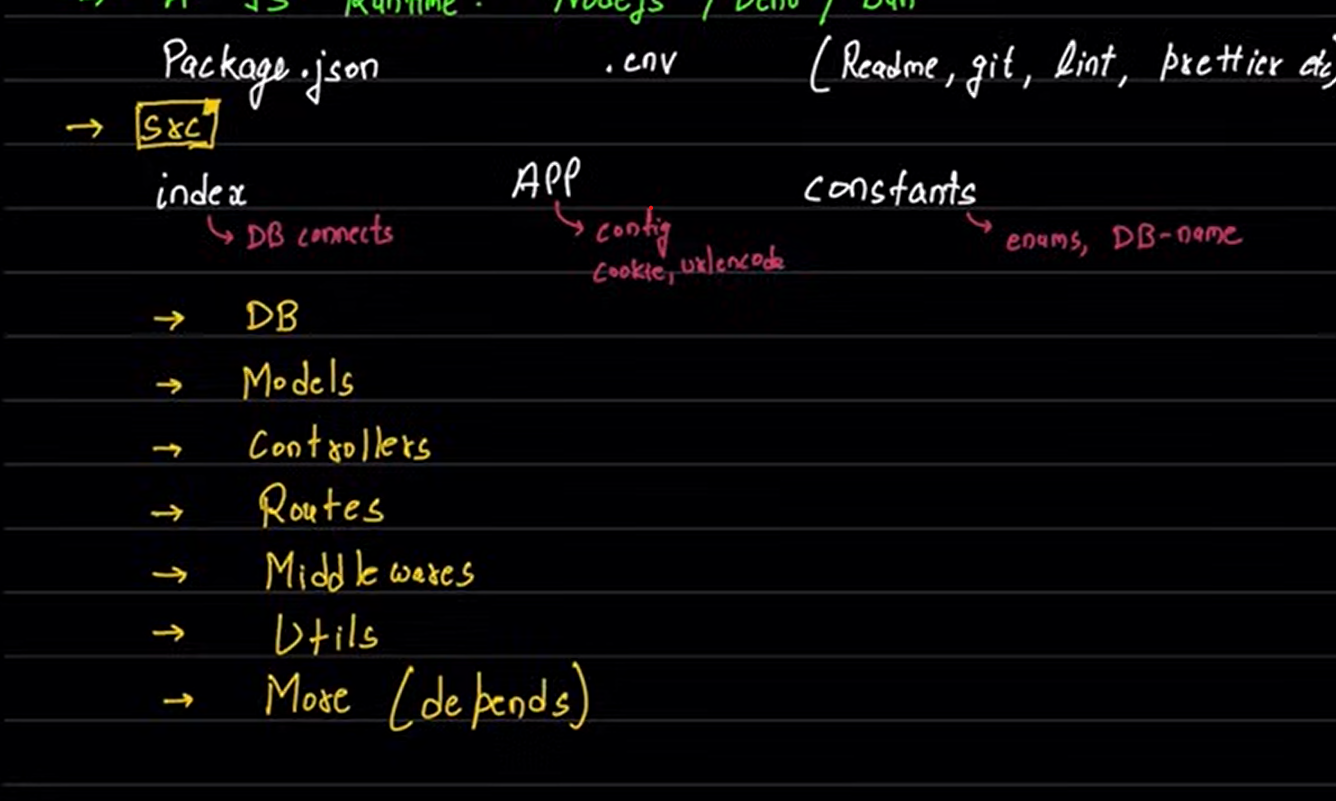 → A JS Runtime: Nodejs / Deno / Bun
Package.json .env (Readme, git, lint, prettier etc)
→ src
index APP constants
↳ DB connects ↳ config ↳ enams, DB-name
cookie, urlencode
→ DB
→ Models
→ Controllers
→ Routes
→ Middlewares
→ Utils
→ More (depends)